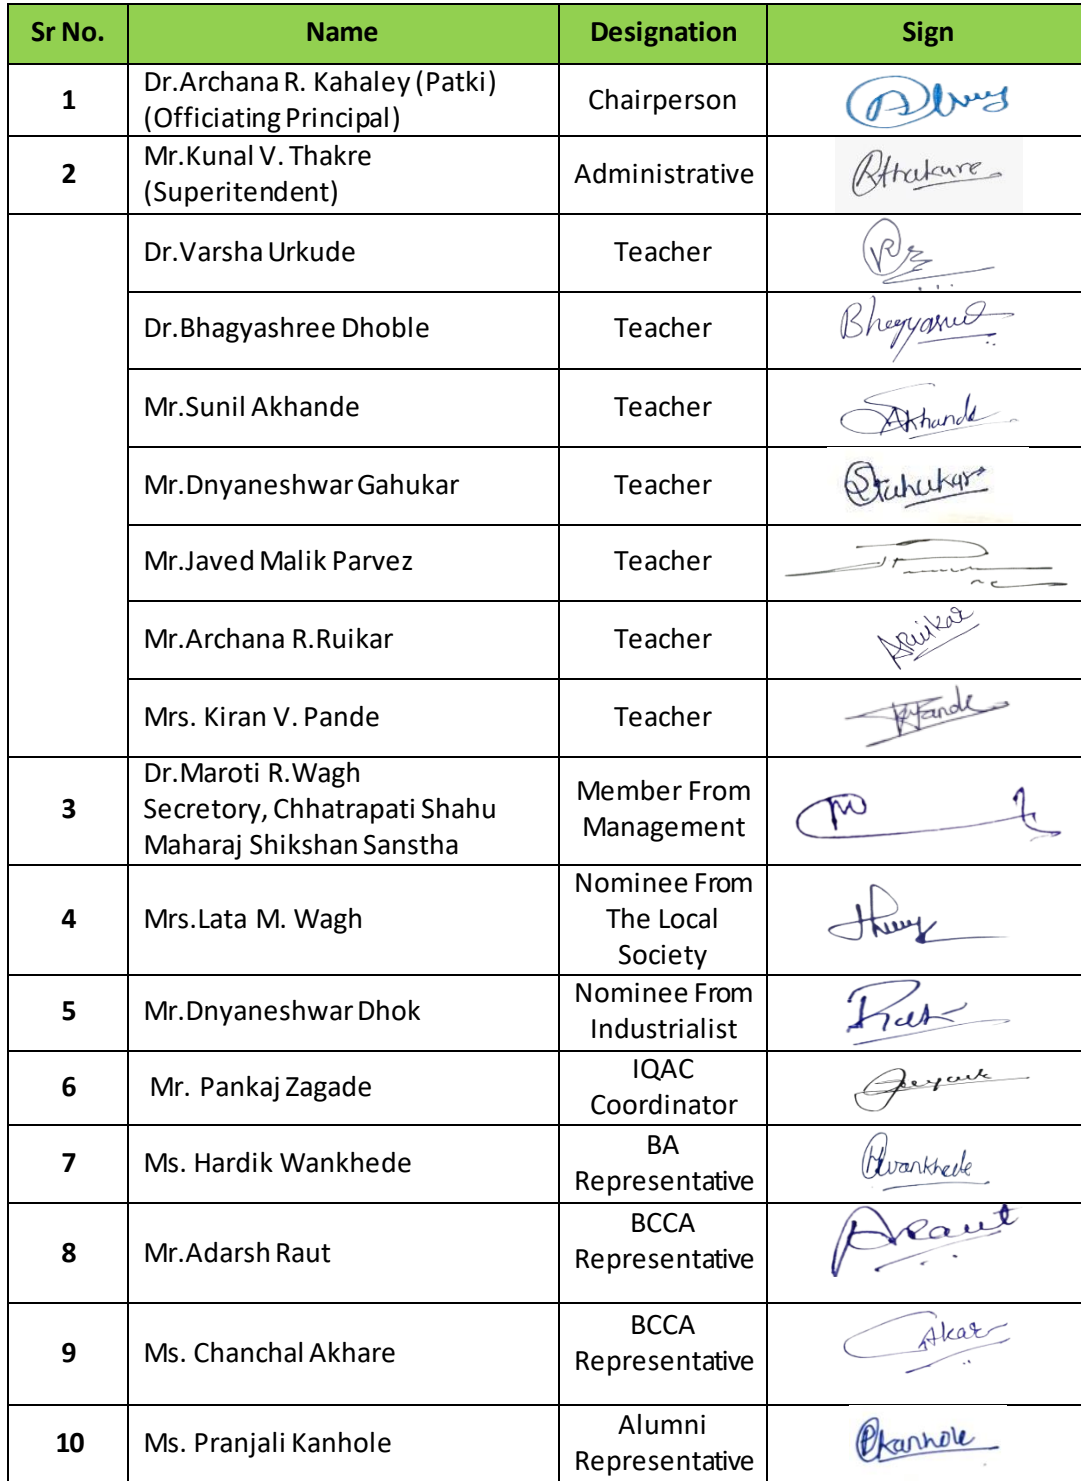 Sr No. Name Designation Sign
1 Dr.Archana R. Kahaley (Patki)
(Officiating Principal) Chairperson
2 Mr.Kunal V. Thakre
(Superitendent) Administrative RThakure
Dr.Varsha Urkude Teacher
Dr.Bhagyashree Dhoble Teacher
Mr.Sunil Akhande Teacher SAkhande
Mr.Dnyaneshwar Gahukar Teacher
Mr.Javed Malik Parvez Teacher
Mr.Archana R.Ruikar Teacher ARuikar
Mrs. Kiran V. Pande Teacher
3 Dr.Maroti R.Wagh
Secretory, Chhatrapati Shahu
Maharaj Shikshan Sanstha
Member From
Management
4 Mrs.Lata M. Wagh
Nominee From
The Local
Society
5 Mr.Dnyaneshwar Dhok
Nominee From
Industrialist
6 Mr. Pankaj Zagade
IQAC
Coordinator
7 Ms. Hardik Wankhede
BA
Representative
Hwankhede
8 Mr.Adarsh Raut
BCCA
Representative
ARaut
9 Ms. Chanchal Akhare
BCCA
Representative
10 Ms. Pranjali Kanhole
Alumni
Representative
Pkanhole